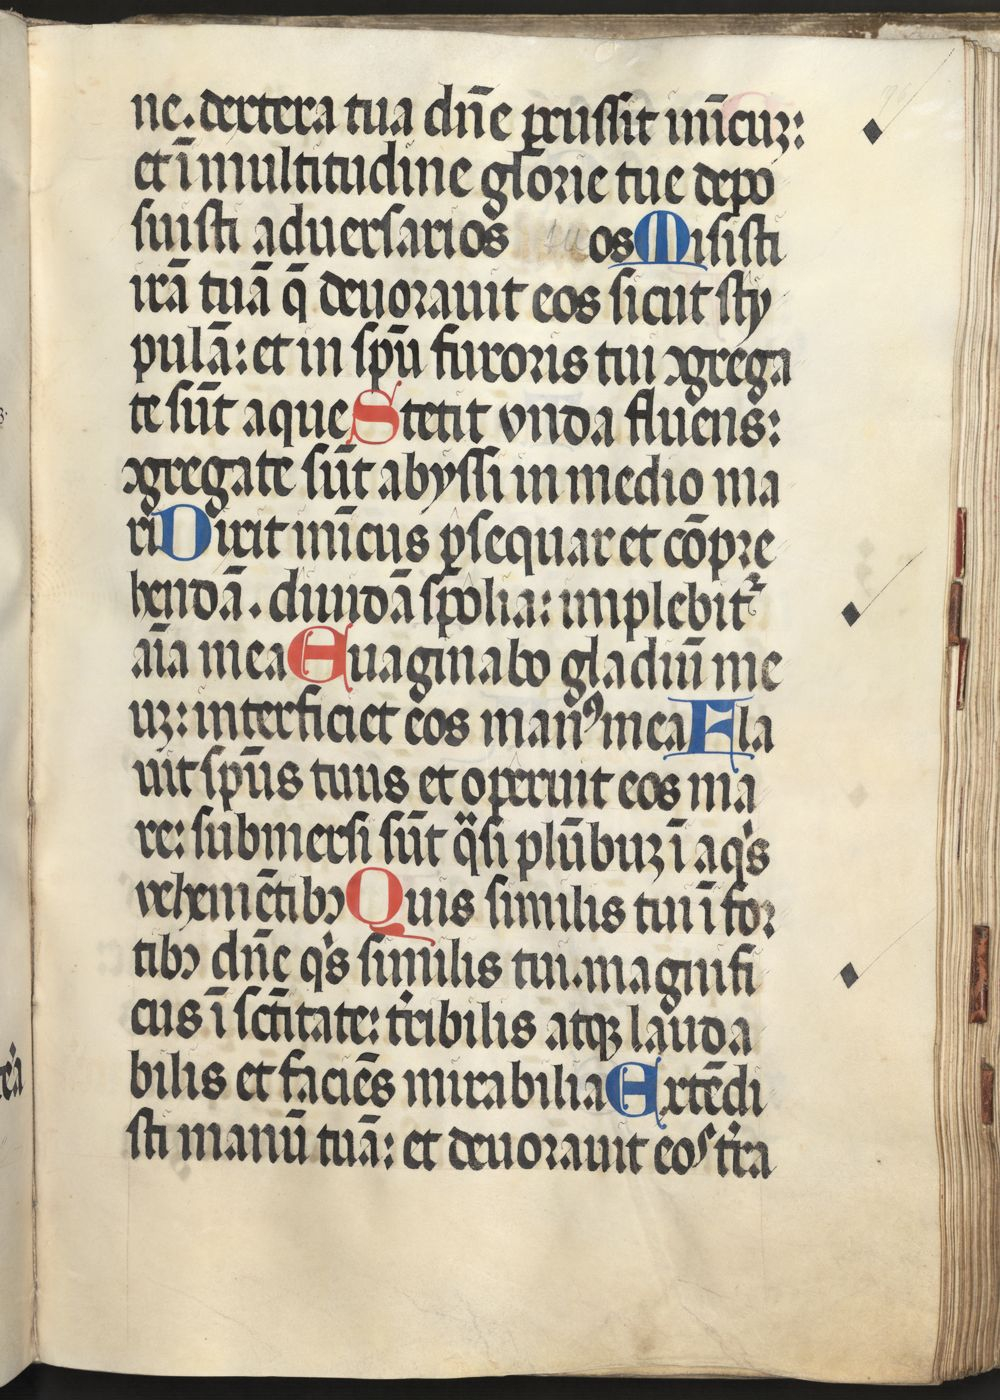 ne. dextera tua dn̄e ꝑcussit inīcuꝫ:
et ī multitudine glorie tue depo
suisti aduersarios tuos Misisti
irā tuā q̄ deuorauit eos sicut sty
pulā: et in sp̄u furoris tui ꝯgrega
te sūt aque Stetit vnda fluens:
ꝯgregate sūt abyssi in medio ma
ri Dixit inīcus ꝑsequar et cōpre
hendā. diuidā spolia: implebit᷑
aīa mea Euaginabo gladiū me
uꝫ: interficiet eos manꝰ mea Fla
uit sp̄us tuus et operuit eos ma
re: submersi sūt qͣsi plūbuꝫ ī aqͥs
vehemētibꝫ Quis similis tui ī for
tibꝫ dn̄e qͥs similis tui. magnifi
cus ī sc̄titate: tr̄ibilis atqꝫ lauda
bilis et faciēs mirabilia Extēdi
sti manū tuā: et deuorauit eos tr̄a